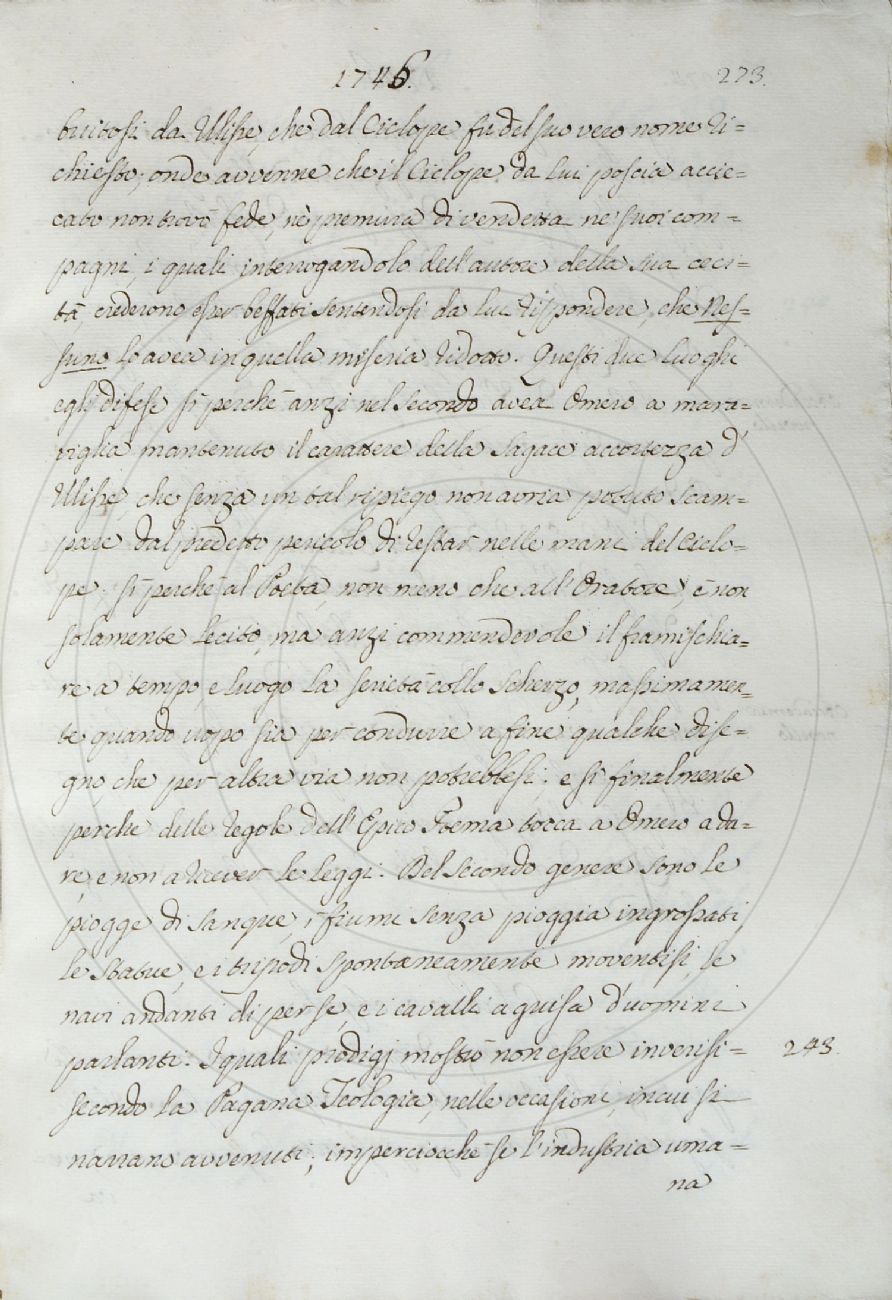 1746.
273.
buitosi da Ulisse, che dal Ciclope fù del suo vero nome ri=
chiesto; onde avvenne che il Ciclope da lui poscia accie=
cato non trovò fede, nè premura di vendetta ne' suoi com=
pagni, i quali interrogandolo dell'autore della sua ceci=
tà, crederono esser beffati sentendosi da lui rispondere, che Nes=
suno lo avea in quella miseria ridotto. Questi due luoghi
egli difese sì perchè anzi nel secondo avea Omero a mara=
viglia mantenuto il carattere della sagace accortezza d'
Ulisse, che senza un tal ripiego non avria potuto scam=
pare dal predetto pericolo di restar nelle mani del Ciclo=
pe; sì perchè al Poeta, non meno che all'Oratore, è non
solamente lecito, ma anzi commendevole il framischia=
re a tempo, e luogo la serietà collo scherzo, massimamen=
te quando uopo sia per condurre a fine qualche dise=
gno, che per altra via non potrebbesi: e sì finalmente
perche delle regole dell'Epico Poema tocca a Omero a da=
re, e non a ricever le leggi. Del secondo genere sono le
piogge di sangue, i fiumi senza pioggia ingrossati,
le statue, e i tripodi spontaneamente moventisi, le
navi andanti di per se, e i cavalli a guisa d'uomini
parlanti. I quali prodigj mostrò non essere inverisi=
243.
secondo la Pagana Teologia, nelle occasioni, in cui si
narrano avvenuti; imperciocchè se l'industria uma=
na